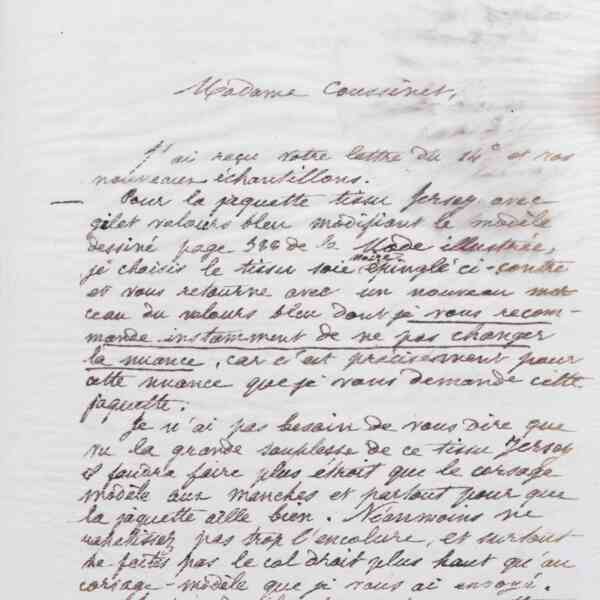 Madame Coussinet,
J'ai reçu votre lettre du 14 et vos
nouveaux échantillons.
— Pour la jaquette tissu Jersey avec
gilet velours bleu modifiant le modèle
dessiné page 386 de la Mode illustrée,
je choisis le tissu soie noire épinglé ci-contre
et vous retourne avec un nouveau mor-
ceau du velours bleu dont je vous recom-
mande instamment de ne pas changer
la nuance, car c'est précisément pour
cette nuance que je vous demande cette
jaquette.
Je n'ai pas besoin de vous dire que
vu la grande souplesse de ce tissu Jersey
il faudra faire plus étroit que le corsage
modèle aux manches et partout pour que
la jaquette aille bien. Néanmoins ne
pas trop l'encolure, et surtout
ne faites pas le col droit plus haut qu'au
corsage-modèle que je vous ai envoyé.